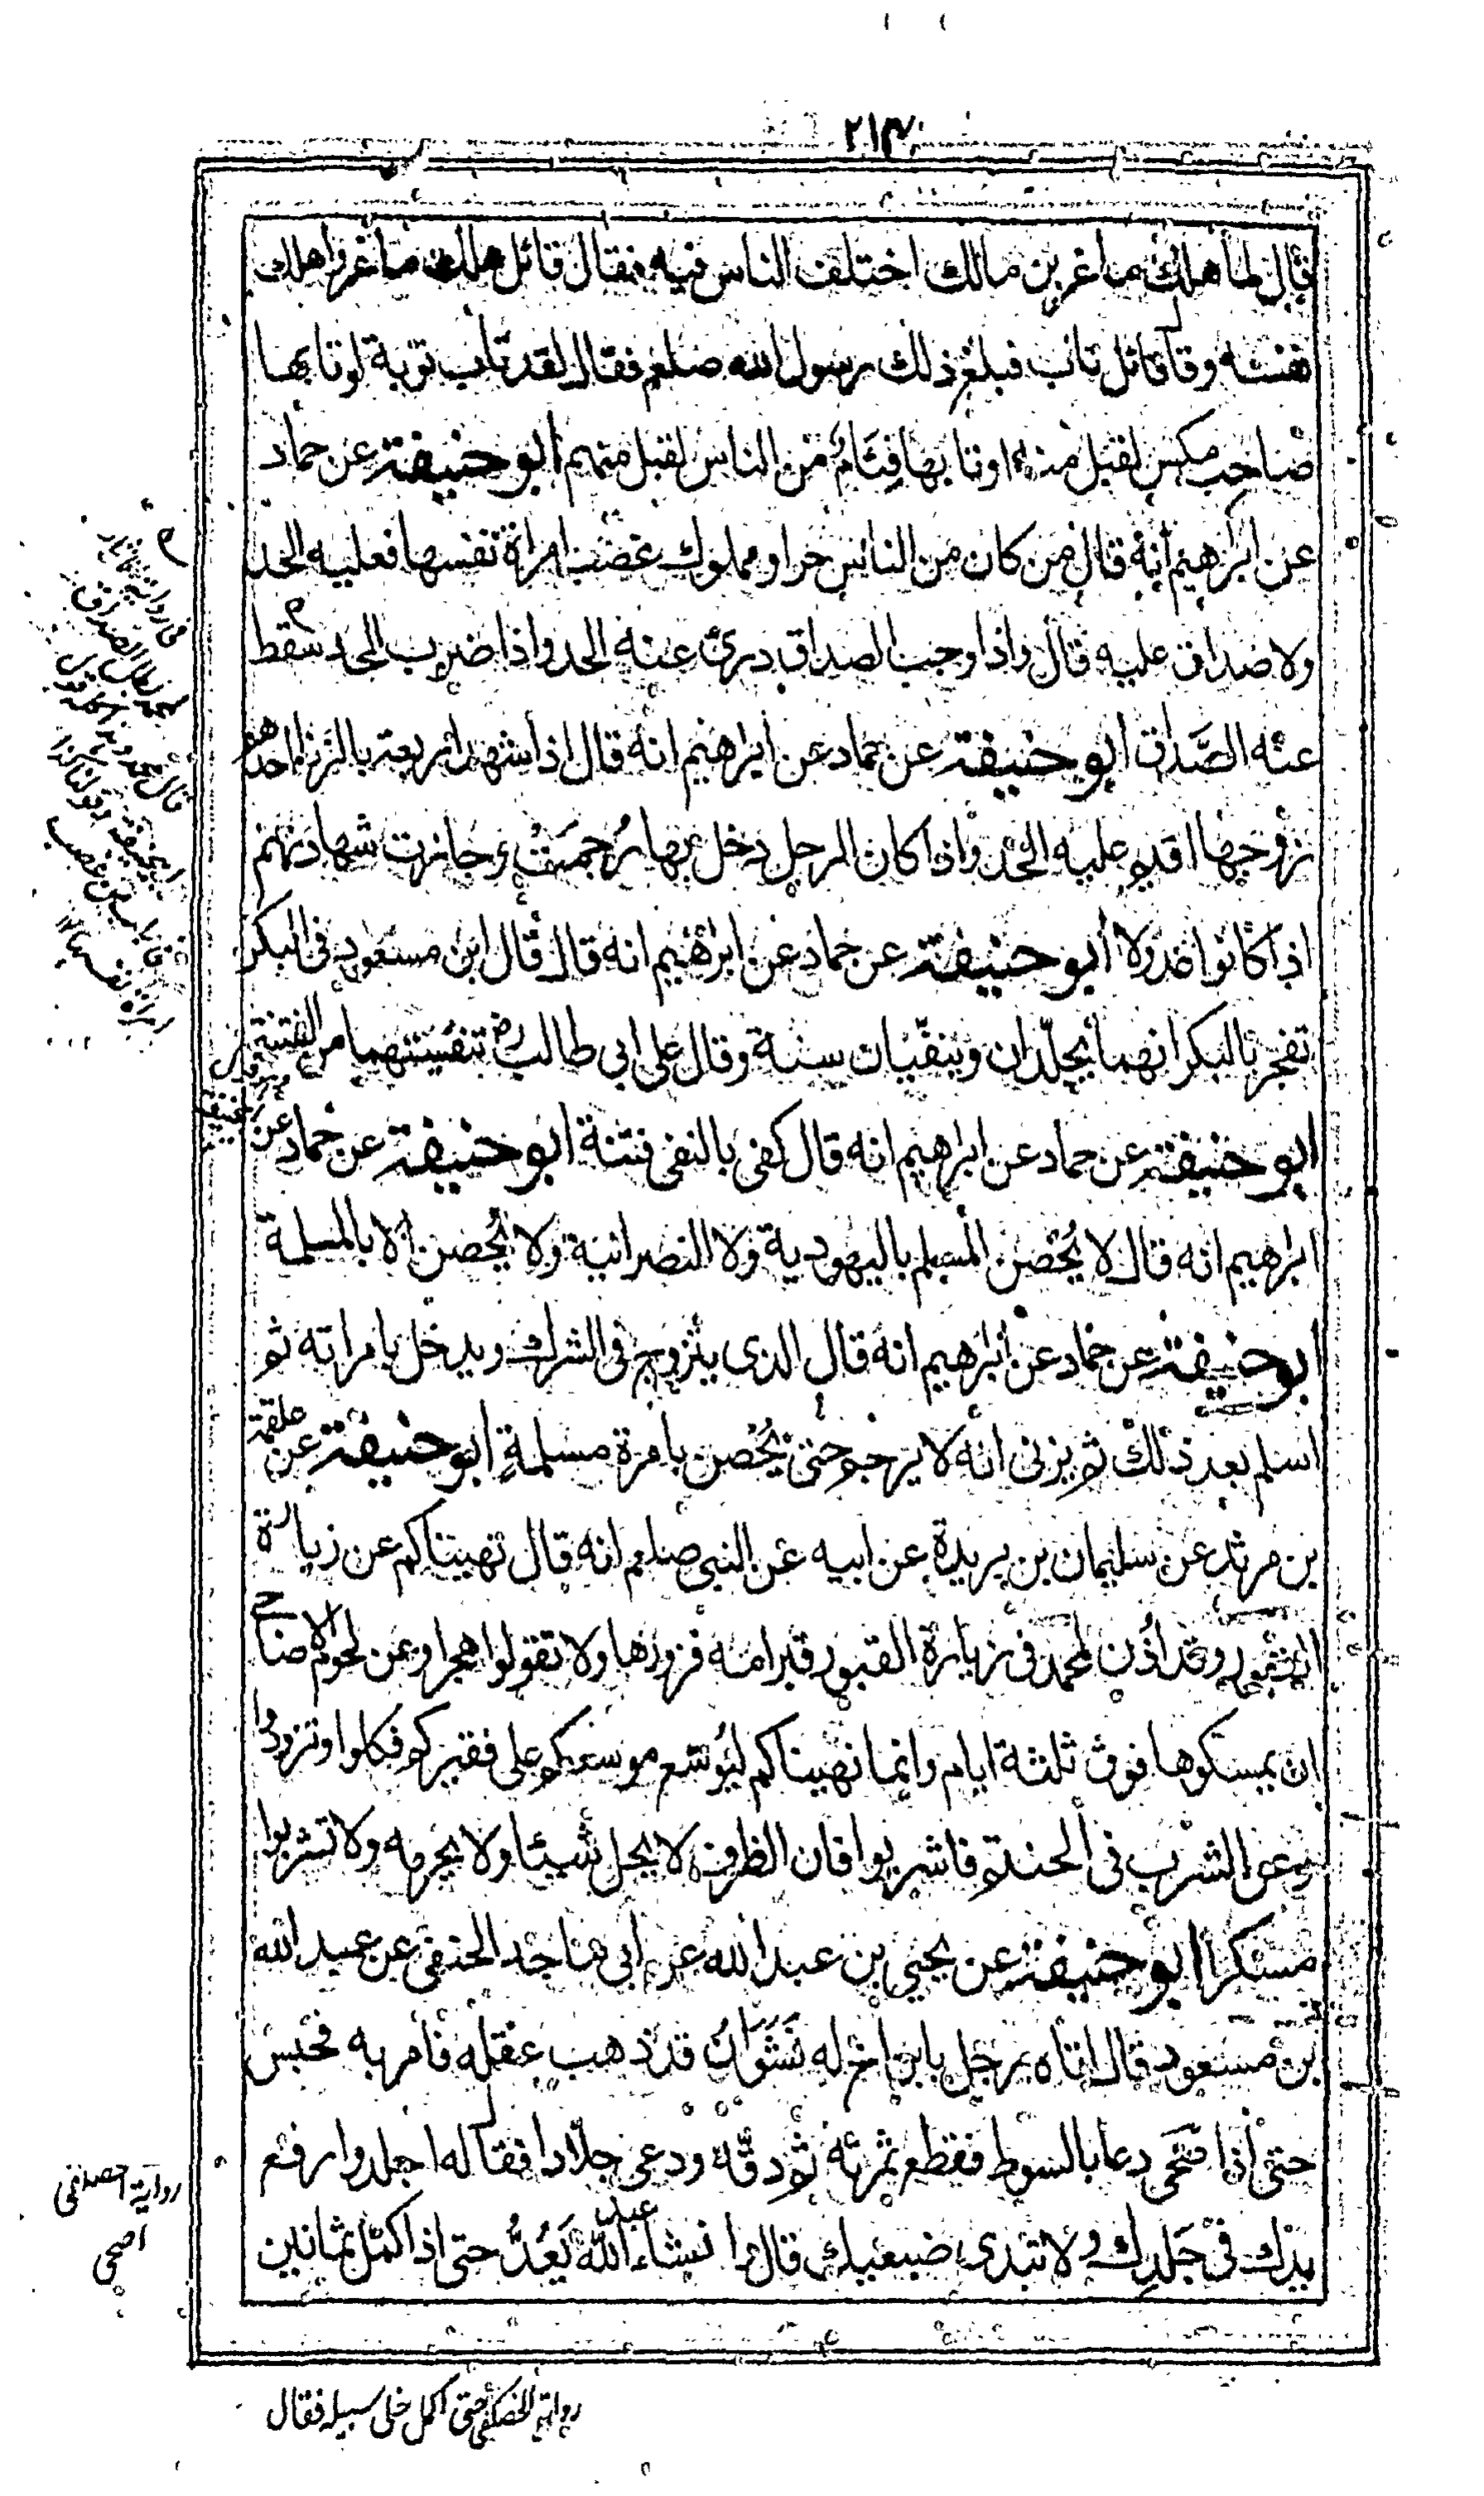 ٢١٣
قال لما هلك ماعز بن مالك اختلف الناس فيه فقال قائل هلك ماعز واهلك
نفسه وقال قائل تاب فبلغ ذلك رسول الله صلعم فقال لقد تاب توبة لو تابها
صاحب مكس لقبل منه او تابها فئام من الناس لقبل منهم ابو حنيفة عن حماد
عن ابرهيم انه قال من كان من الناس حرا ومملوك غصب امراة نفسها فعليه الحد
ولا صداق عليه قال واذا وجب الصداق درئ عنه الحد واذا ضرب الحد سقط
عنه الصداق ابو حنيفة عن حماد عن ابرهيم انه قال اذا شهد اربعة بالزنا احدهم
زوجها اقيم عليه الحد واذا كان الرجل دخل بها رُجمت وجازت شهادتهم
اذا كانوا عدولا ابو حنيفة عن حماد عن ابرهيم انه قال قال ابن مسعود في البكر
تفجر بالبكر انهما يجلدان وينفيان سنة وقال علي ابي طالب رض نفيتهما من الفتنة
ابو حنيفة عن حماد عن ابرهيم انه قال كفى بالنفى فتنة ابو حنيفة عن حماد عن
ابرهيم انه قال لا يُحصن المسلم باليهودية ولا النصرانية ولا يُحصن الا بالمسلمة
ابو حنيفة عن حماد عن ابرهيم انه قال الذى يتزوج فى الشرك ويدخل بامراته ثم
اسلم بعد ذلك ثم يزنى انه لا يرجم حتى يُحصن بامرة مسلمةٍ ابو حنيفة عن علقمة
بن مرثد عن سليمان بن بريدة عن ابيه عن النبى صلعم انه قال نهيناكم عن زيارة
القبور وقد اُذن لمحمد فى زيارة القبور قبر امه فزوروها ولا تقولوا هجرا وعن لحوم الاضاحى
ان يمسكوها فوق ثلثة ايام وانما نهيناكم ليُوسّع موسعكم على فقيركم فكلوا وتزودوا
وعن الشرب فى الحنتم فاشربوا فان الظرف لا يحل شيئا ولا يحرمه ولا تشربوا
مسكرا ابو حنيفة عن يحيى بن عبد الله عن ابى ماجد الحنفى عن عبد الله
بن مسعود قال اتاه رجل بابن اخ له نَشْوَانُ قد ذهب عقله فامر به فحبس
حتى اذا صحى دعا بالسوط فقطع ثمرته ثم دقّه ودعى جلّادا فقال له اجلد وارفع
يدك فى جَلدك ولا تبدى ضبعيك قال وانشاء عبد الله يَعُدُّ حتى اذا كمل ثمانين
رواية الحصكفى
اصحى
رواية الحصكفى حتى اكمل خلى سبيله فقال